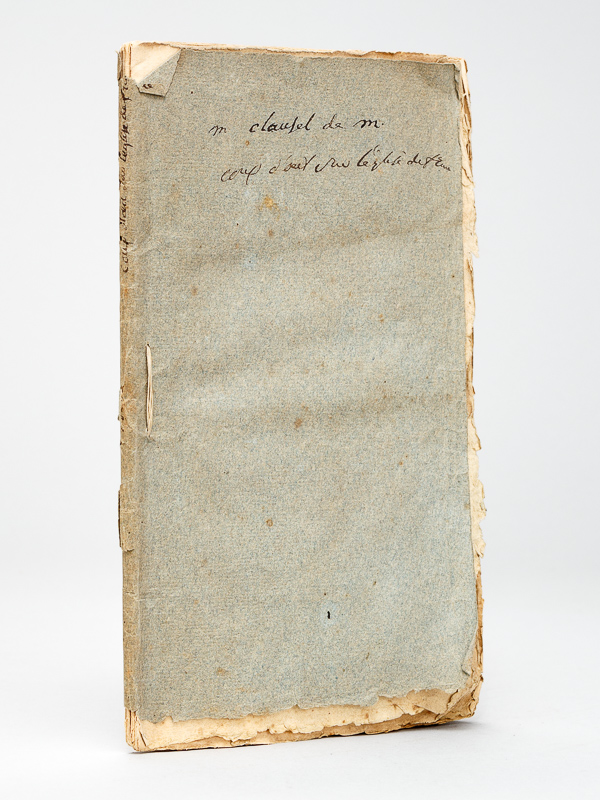 m clausel de m.
coup d'oeil sur l'église de fran
coup d'oeil sur l'église de f